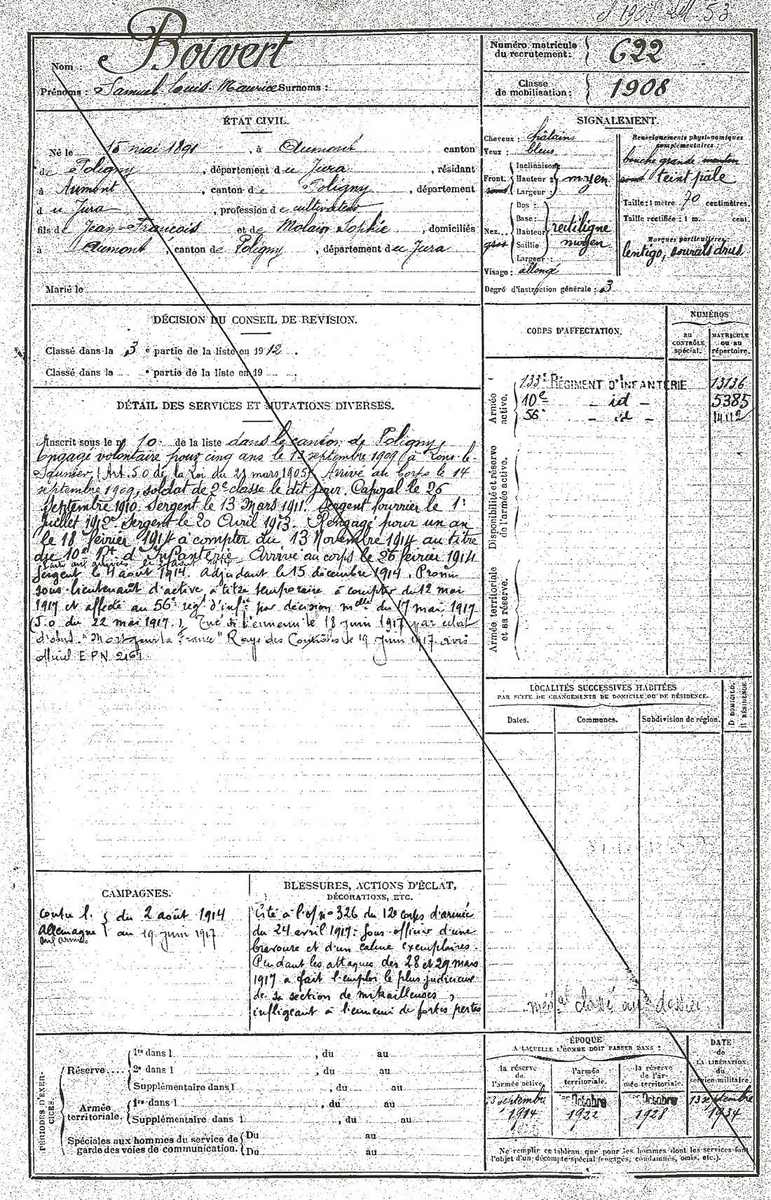 Nom : Boivert
Prénoms : Samuel Louis Maurice Surnoms :
Numéro matricule du recrutement : 622
Classe de mobilisation : 1908
ÉTAT CIVIL.
Né le 15 mai 1891, à Aumont canton
de Poligny, département du Jura, résidant
à Aumont, canton de Poligny, département
du Jura, profession de cultivateur
fils de Jean-François et de Molain Sophie, domiciliés
à Aumont, canton de Poligny, département du Jura
Marié le
SIGNALEMENT.
Cheveux : châtains
Yeux : bleus
Front. Inclinaison Hauteur Largeur moyen
Nez. Dos : Base : Hauteur Saillie Largeur : rectiligne moyen
gros
Visage : allongé
Degré d'instruction générale : 3
Renseignements physionomiques complémentaires :
bouche grande menton
rond teint pâle
Taille : 1 mètre 70 centimètres.
Taille rectifiée : 1 m. cent.
Marques particulières :
lentigo, sourcils drus
DÉCISION DU CONSEIL DE REVISION.
Classé dans la 3e partie de la liste en 1912.
Classé dans la e partie de la liste en 19
DÉTAIL DES SERVICES ET MUTATIONS DIVERSES.
Inscrit sous le no 10 de la liste dans le canton de Poligny
Engagé volontaire pour cinq ans le 13 septembre 1909 à Lons-le-
Saunier (Art. 50 de la Loi du 21 mars 1905) Arrivé au Corps le 14
septembre 1909, soldat de 2e classe le dit jour. Caporal le 26
Septembre 1910. Sergent le 13 Mars 1911. Sergent fourrier le 1er
juillet 1912. Sergent le 20 Avril 1913. Rengagé pour un an
le 18 février 1914 à compter du 13 Novembre 1914 au titre
du 10e Rt d'Infanterie. Arrivé au corps le 26 février 1914
Sergent le 4 août 1914. Adjudant le 15 décembre 1914. Promu
sous-lieutenant d'active à titre temporaire à compter du 12 mai
1917 et affecté au 56e reg. d'infie par décision melle du 17 mai 1917
(J.o du 22 mai 1917.) Tué à l'ennemi le 18 juin 1917 par éclat
d'obus "Mort pour la France" Rays des le 19 juin 1917 avis
officiel E.P.N.
CORPS D'AFFECTATION.
NUMÉROS
AU CONTRÔLE spécial.
MATRICULE OU AU répertoire.
Armée active.
133e RÉGIMENT D'INFANTERIE 13136
10e - id - 5385
56e - id -
Disponibilité et réserve de l'armée active.
Armée territoriale et sa réserve.
LOCALITÉS SUCCESSIVES HABITÉES
PAR SUITE DE CHANGEMENTS DE DOMICILE OU DE RÉSIDENCE.
Dates. Communes. Subdivision de région. D. DOMICILE. R. RÉSIDENCE.
CAMPAGNES.
Contre l'Allemagne du 2 août 1914
aux armées au 19 juin 1917
BLESSURES, ACTIONS D'ÉCLAT, DÉCORATIONS, ETC.
Cité à l'of no 326 du 12e corps d'armée
du 24 avril 1917 : sous-officier d'une
bravoure et d'un calme exemplaires.
Pendant les attaques des 28 et 29 mars
1917 a fait l'emploi le plus judicieux
de sa section de mitrailleuses,
infligeant à l'ennemi de fortes pertes
classé au dossier
PÉRIODES D'EXERCICES.
Réserve....
1re dans l , du au
2e dans l , du au
Supplémentaire dans l , du au
Armée territoriale.
1re dans l , du au
Supplémentaire dans l , du au
Spéciales aux hommes du service de garde des voies de communication.
Du au
Du au
ÉPOQUE
A LAQUELLE L'HOMME DOIT PASSER DANS :
la réserve de l'armée active. l'armée territoriale. la réserve de l'armée territoriale.
DATE DE LA LIBÉRATION du service militaire.
13 septembre 1914
Octobre 1922
Octobre 1928
13 septembre 1934
Ne remplir ce tableau que pour les hommes dont les services font
l'objet d'un décompte spécial (engagés, condamnés, omis, etc.).